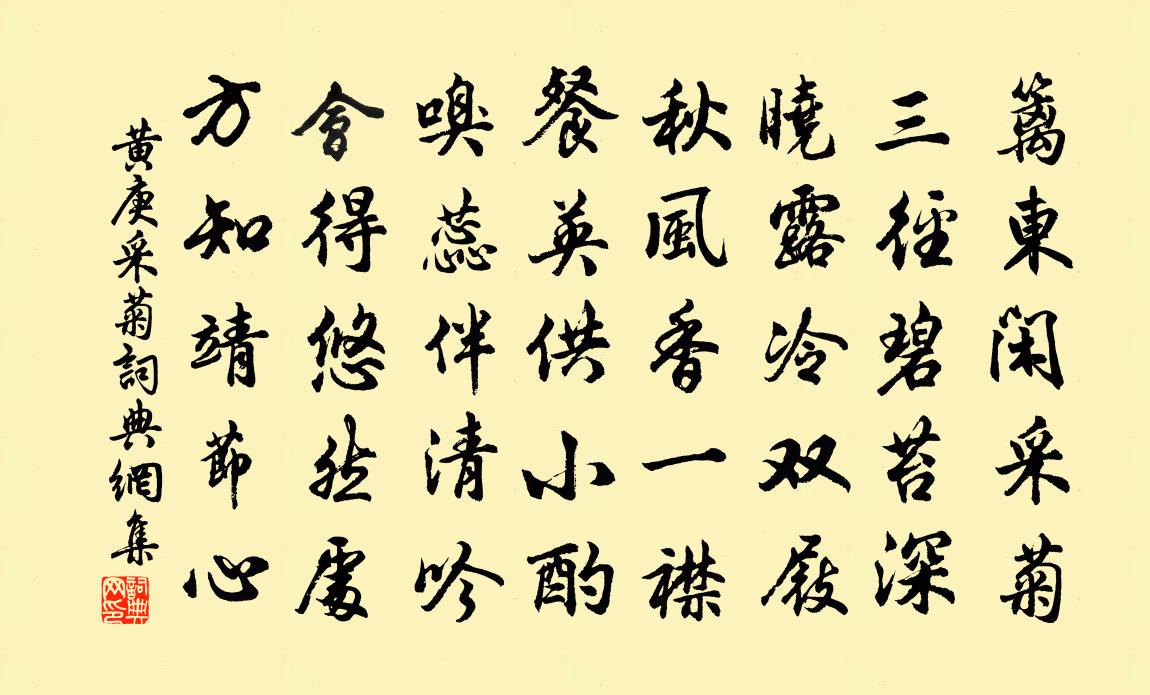 籬東閑采菊
三徑碧苔深
曉露冷双屐
秋風香一襟
餐英供小酌
嗅蕊伴清吟
會得悠然處
方知靖節心
黄庚采菊詞典網集
詞典網印